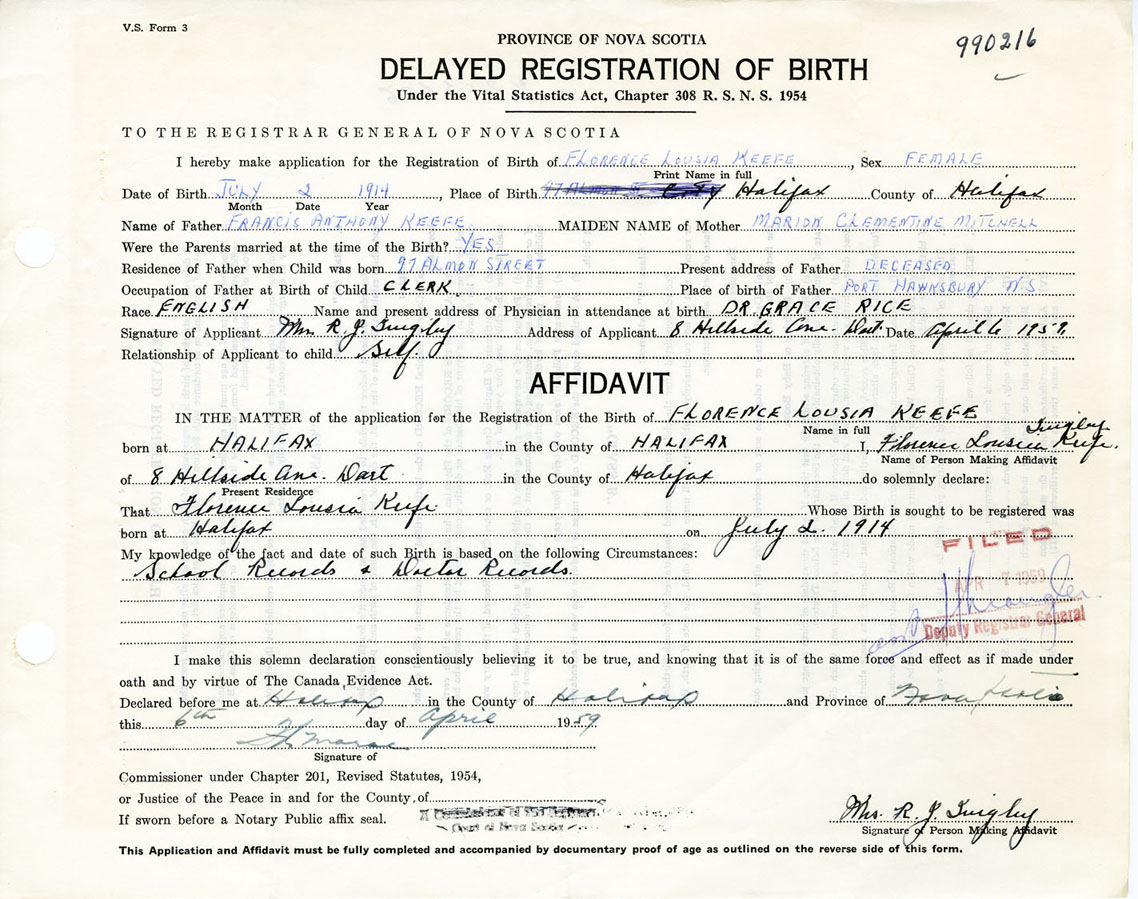 V.S. Form 3
990216
PROVINCE OF NOVA SCOTIA
DELAYED REGISTRATION OF BIRTH
Under the Vital Statistics Act, Chapter 308 R. S. N. S. 1954
TO THE REGISTRAR GENERAL OF NOVA SCOTIA
I hereby make application for the Registration of Birth of FLORENCE LOUSIA KEEFE, Sex FEMALE
Print Name in full
Date of Birth JULY 2 1914, Place of Birth 97 ALMON ST. CITY Halifax County of Halifax
Month Date Year
Name of Father FRANCIS ANTHONY KEEFE MAIDEN NAME of Mother MARION CLEMENTINE MITCHELL
Were the Parents married at the time of the Birth? YES
Residence of Father when Child was born 97 ALMON STREET Present address of Father DECEASED
Occupation of Father at Birth of Child CLERK Place of birth of Father PORT HAWKSBURY N.S
Race ENGLISH Name and present address of Physician in attendance at birth DR. GRACE RICE
Signature of Applicant Mrs R. J. Tingley Address of Applicant 8 Hillside Ave. Dart. Date April 6 1959.
Relationship of Applicant to child Self.
AFFIDAVIT
IN THE MATTER of the application for the Registration of the Birth of FLORENCE LOUSIA KEEFE
Name in full
Tingley
born at HALIFAX in the County of HALIFAX I, Florence Lousia Keefe.
Name of Person Making Affidavit
of 8 Hillside Ave. Dart in the County of Halifax do solemnly declare:
Present Residence
That Florence Lousia Keefe Whose Birth is sought to be registered was
born at Halifax on July 2. 1914
My knowledge of the fact and date of such Birth is based on the following Circumstances:
School Records & Doctor Records.
FILED
APR 7 1959
Deputy Registrar General
I make this solemn declaration conscientiously believing it to be true, and knowing that it is of the same force and effect as if made under
oath and by virtue of The Canada Evidence Act.
Declared before me at Halifax in the County of Halifax and Province of Nova Scotia
this 6th day of April 1959.
Signature of
Commissioner under Chapter 201, Revised Statutes, 1954,
or Justice of the Peace in and for the County, of
If sworn before a Notary Public affix seal.
A Commissioner of the Supreme
Court of Nova Scotia
Mrs. R. J. Tingley
Signature of Person Making Affidavit
This Application and Affidavit must be fully completed and accompanied by documentary proof of age as outlined on the reverse side of this form.